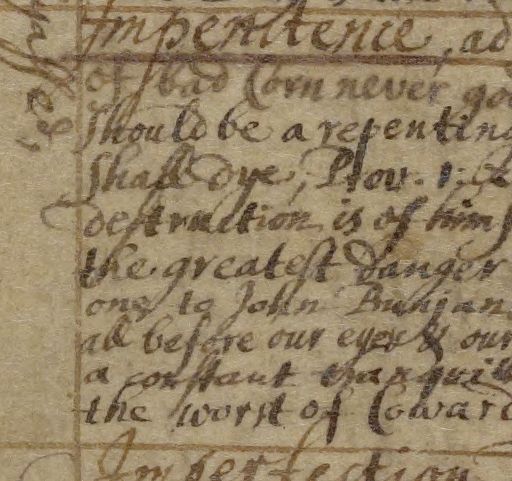 Impenitence, ad
of bad Corn never goo
should be a repenting
shall dye, Prov. 1.
destruction is of him s
the greatest danger
one, to John Bunian
all before our eyes & our
a constant tranquill
the worst of Coward
Imperfection